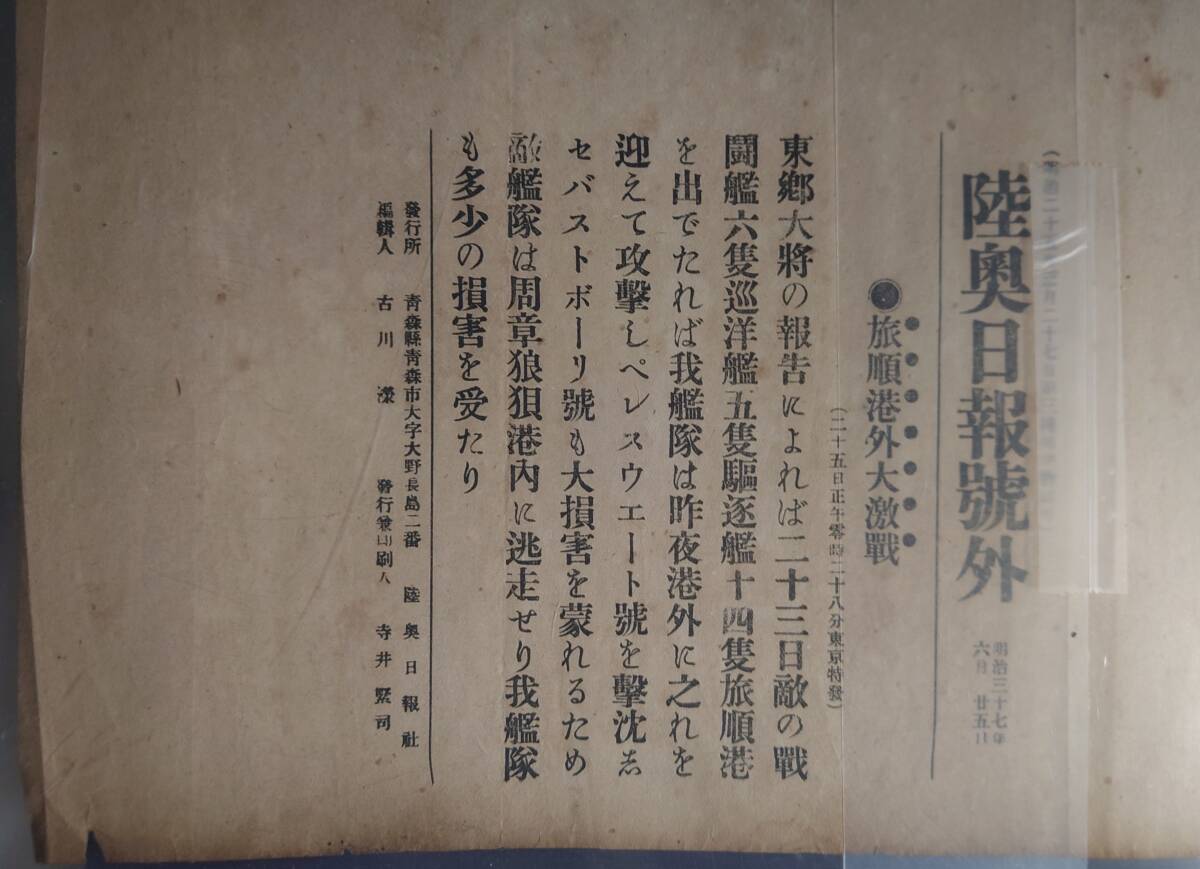 陸奧日報號外
明治三十七年
六月廿五日
●旅順港外大激戰
(二十五日正午零時二十八分東京特發)
東鄕大將の報吿によれば二十三日敵の戰
鬪艦六隻巡洋艦五隻驅逐艦十四隻旅順港
を出でたれば我艦隊は昨夜港外に之れを
迎えて攻擊しペレスウエート號を擊沈し
セバストボーリ號も大損害を蒙れるため
敵艦隊は周章狼狽港內に逃走せり我艦隊
も多少の損害を受たり
發行所 靑森縣靑森市大字大野長島二番 陸奧日報社
編輯人 古川 發行兼印刷人 寺井 司